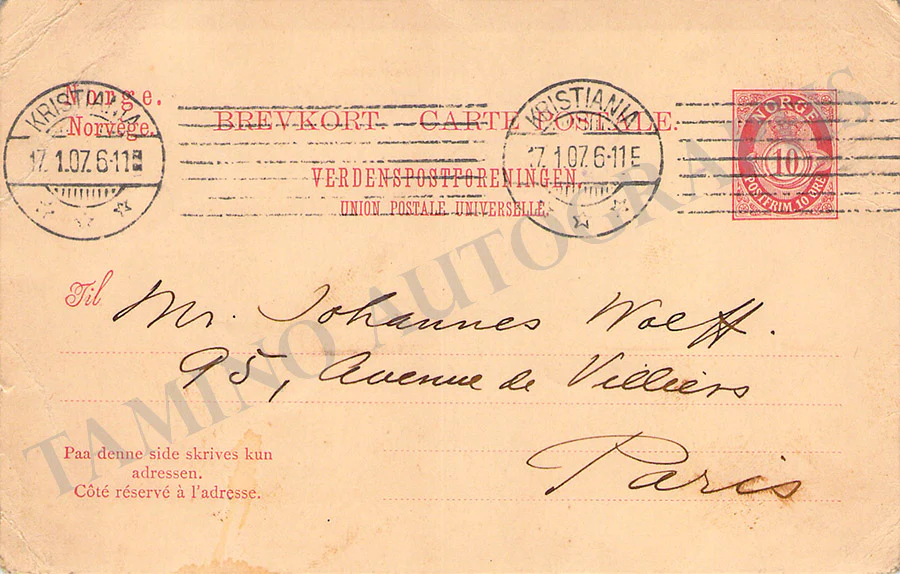 Norge.
Norvège.
BREVKORT. CARTE POSTALE.
VERDENSPOSTFORENINGEN
UNION POSTALE UNIVERSELLE
KRISTIANIA
17. 1.07. 6-11 E
KRISTIANIA
17. 1.07. 6-11 E
NORGE
10
POSTFRIM. 10 ØRE
Til
Mr. Johannes Wolff.
95, Avenue de Villiers
Paris
Paa denne side skrives kun
adressen.
Côté réservé à l'adresse.
TAMINO AUTOGRAPHS